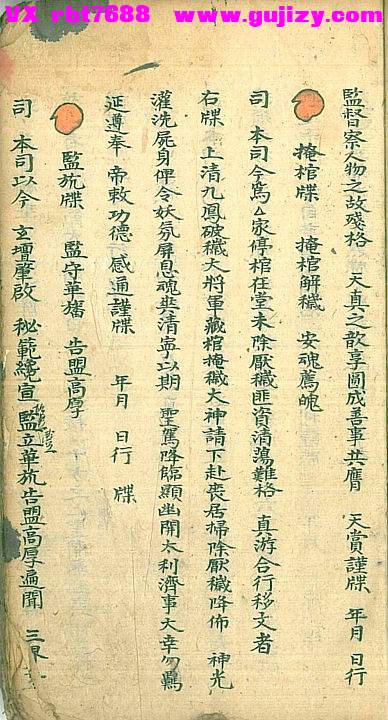 VX rbt7688  www.gujizy.com
監督察人物之故殘格　天真之歆享圓成善事共膺　天賞謹牒　年月　日行
掩棺牒　掩棺解穢　安魂薦魄
司　本司今為厶家停棺在堂未除厭穢匪資清蕩難格　真游合行移文者
右牒　上清九鳳破穢大將軍藏棺掩穢大神請下赴喪居掃除厭穢降佈　神光
灌洗屍身俾令妖氛屏息魂爽清寧以期　聖駕降臨顯幽開太利濟事大幸勿羈
延遵奉　帝敕功德　感通謹牒　年月　日行　牒
監旐牒　監守華旛　告盟高厚
司　本司以今　玄壇肇啟　秘範纔宣　監立華旐告盟高厚遍聞　三界